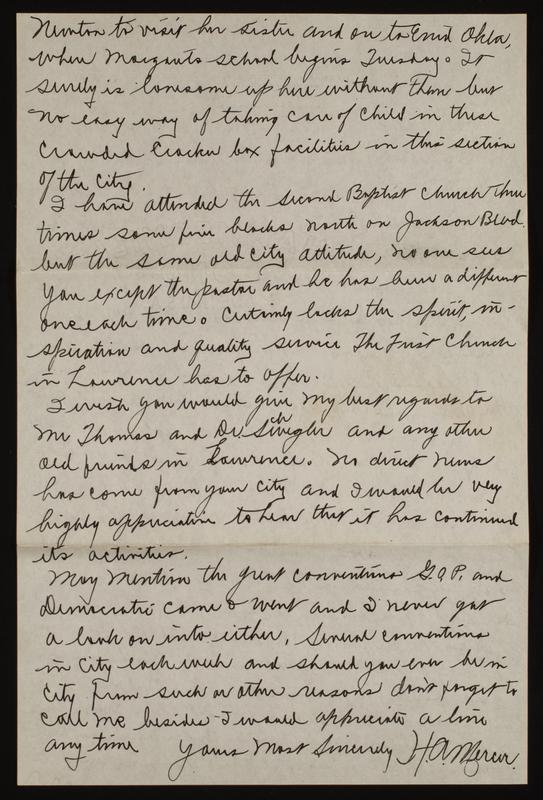 Newton to visit her sister and on to Enid Okla,
where Margarets school begins Tuesday. It
surely is lonesome up here without them but
no easy way of taking care of child in these
crowded cracker box facilities in this section
of the city.
I have attended the second Baptist Church three
times some five blocks north on Jackson Blvd.
but the same old city attitude, no one sees
you except the pastor and he has been a different
one each time. Certainly lacks the spirit, in-
spiration and quality service The First Church
in Lawrence has to offer.
I wish you would give my best regards to
Mr Thomas and Dr. and any other
old friends in Lawrence. No direct news
has come from your city and I would be very
highly appreciative to hear that it has continued
its activities.
May mention the great conventions G.O.P. and
Democratic came & went and I never got
a look on into either. Several conventions
in city each week and should you ever be in
city from such or other reasons don't forget to
call me besides I would appreciate a line
any time Yours Most Sincerely H.A. Mercer.